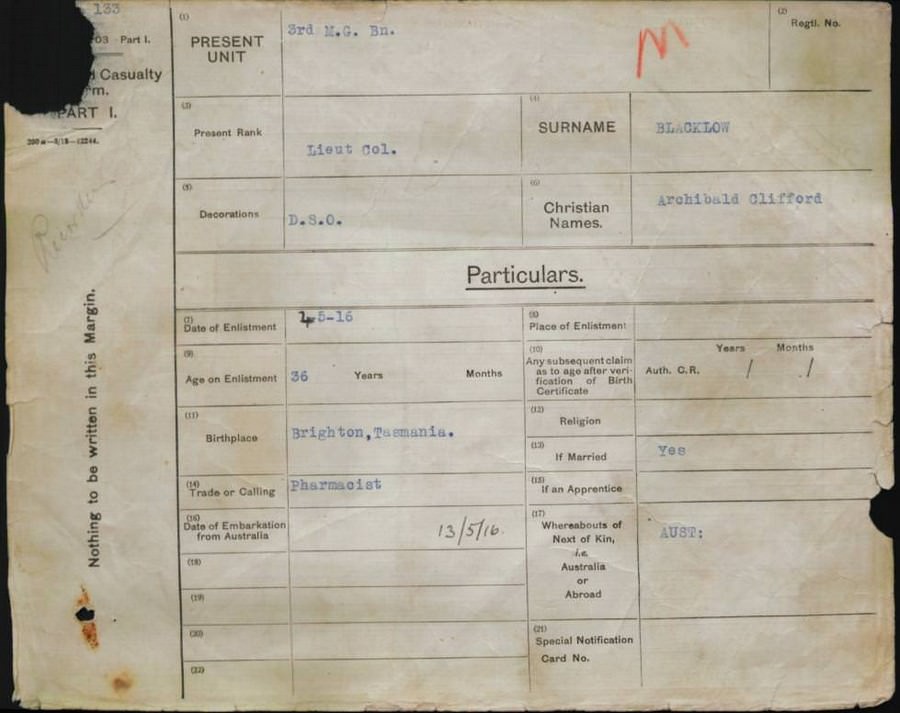 133
03 Part I.
Casualty
rm.
PART I.
200m—3/18—12244.
Nothing to be written in this Margin.
(1)
PRESENT
UNIT
3rd M.G. Bn.
M
(2)
Regtl. No.
(3)
Present Rank
Lieut Col.
(4)
SURNAME
BLACKLOW
(5)
Decorations
D.S.O.
(6)
Christian
Names.
Archibald Clifford
Particulars.
(7)
Date of Enlistment
5-16
(8)
Place of Enlistment
(9)
Age on Enlistment
36 Years Months
(10)
Any subsequent claim
as to age after veri-
fication of Birth
Certificate
Years Months
Auth. C.R. / /
(11)
Birthplace
Brighton,Tasmania.
(12)
Religion
(13)
If Married
Yes
(14)
Trade or Calling
Pharmacist
(15)
If an Apprentice
(16)
Date of Embarkation
from Australia
13/5/16.
(17)
Whereabouts of
Next of Kin,
i.e.
Australia
or
Abroad
AUST:
(18)
(19)
(20)
(21)
Special Notification
Card No.
(22)